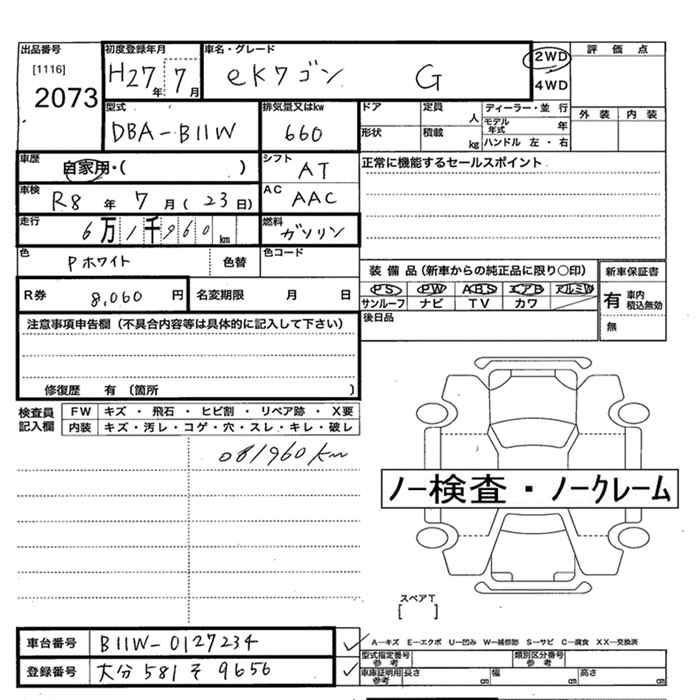 出品番号 初度登録年月 車名・グレード 2WD 評価点
[1116] H27年 7月 eKワゴン G 4WD
2073 型式 排気量又はkw ドア 定員 人 ディーラー・並行 外装 内装
DBA-B11W 660 形状 積載 kg モデル年式 年 ハンドル 左・右
車歴 自家用・( ) シフト AT 正常に機能するセールスポイント
車検 R8年 7月(23日) AC AAC
走行 6万1千960km 燃料 ガソリン
色 Pホワイト 色替 色コード
装備品(新車からの純正品に限り○印) 新車保証書
R券 8,060円 名変期限 月 日 PS PW ABS エアB アルミW 有 車内 積込無効
サンルーフ ナビ TV カワ 無
注意事項申告欄(不具合内容等は具体的に記入して下さい) 後日品
修復歴 有 (箇所 )
検査員記入欄 FW キズ・飛石・ヒビ割・リペア跡・X要
内装 キズ・汚レ・コゲ・穴・スレ・キレ・破レ
081960km
ノー検査・ノークレーム
スペアT
[ ]
車台番号 B11W-0127234
A-キズ E-エクボ U-凹み W-補修跡 S-サビ C-腐食 XX-交換済
型式指定番号 参考 類別区分番号 参考
登録番号 大分 581 そ 9656
車庫証明用 参考 長さ cm 幅 cm 高さ cm